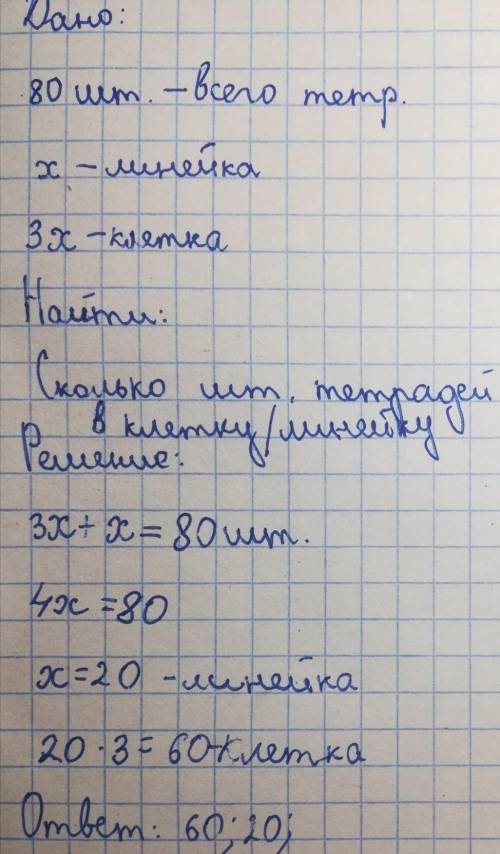 Дано:
80 шт. - всего тетр.
x - линейка
3x - клетка
Найти:
Сколько шт. тетрадей
в клетку/линейку
Решение:
3x + x = 80 шт.
4x = 80
x = 20 - линейка
20 · 3 = 60 - клетка
Ответ: 60; 20;